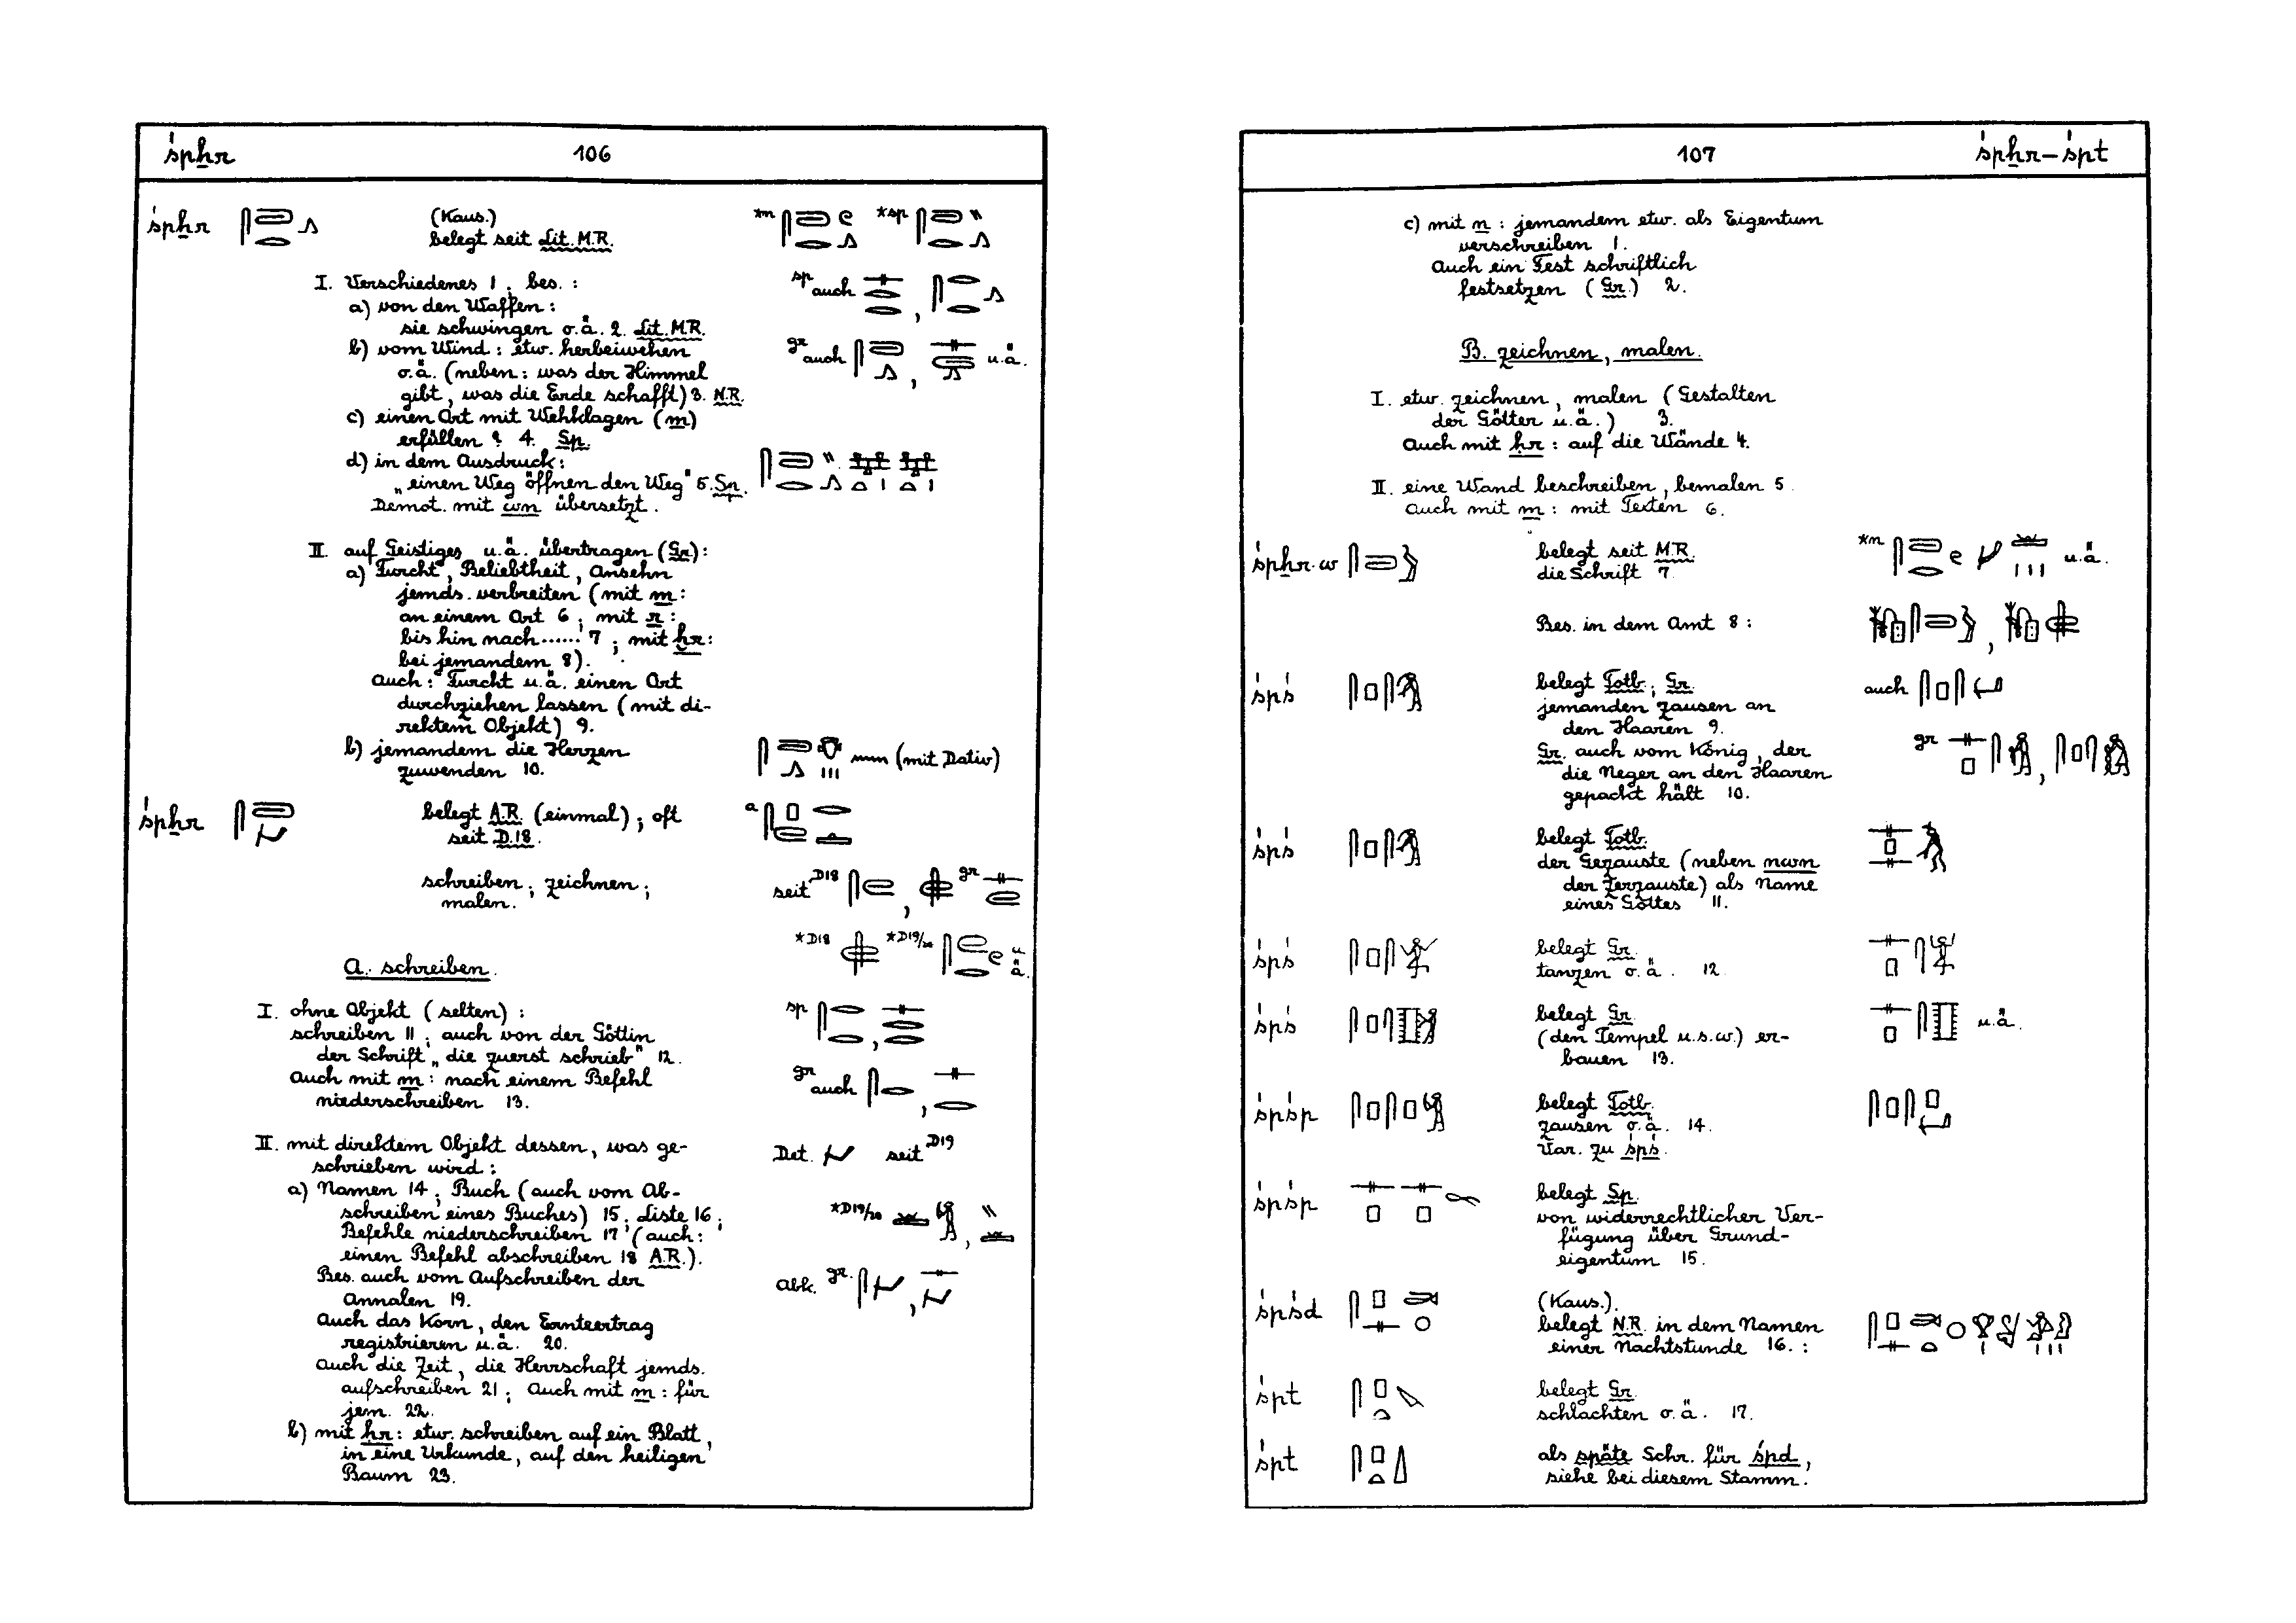 śpẖr 106
śpẖr (Kaus.)
belegt seit Lit. M.R.
*m *sp
I. Verschiedenes 1; bes.:
a) von den Waffen:
sie schwingen o.ä. 2. Lit. M.R.
b) vom Wind: etw. herbeiwehen
o.ä. (neben: was der Himmel
gibt, was die Erde schafft) 3. N.R.
c) einen Ort mit Wehklagen (m)
erfüllen ? 4. Sp.
d) in dem Ausdruck:
„einen Weg öffnen den Weg" 5.
Demot. mit wn übersetzt.
sp auch
gr auch , u.ä.
II. auf Geistiges u.ä. übertragen (Gr):
a) Furcht, Beliebtheit, Ansehn
jemds. verbreiten (mit m:
an einem Ort 6; mit r:
bis hin nach...... 7; mit ḫr:
bei jemandem 8).
Auch: Furcht u.ä. einen Ort
durchziehen lassen (mit di-
rektem Objekt) 9.
b) jemandem die Herzen
zuwenden 10.
(mit Dativ)
śpẖr belegt A.R. (einmal); oft
seit D.18.
a
schreiben; zeichnen;
malen.
seit D18 , gr
*D18 *D19/20 u.ä.
A. schreiben.
I. ohne Objekt (selten):
schreiben 11; auch von der Göttin
der Schrift „die zuerst schrieb" 12.
Auch mit m: nach einem Befehl
niederschreiben 13.
sp ,
gr auch ,
II. mit direktem Objekt dessen, was ge-
schrieben wird:
a) Namen 14; Buch (auch vom Ab-
schreiben eines Buches) 15; Liste 16;
Befehle niederschreiben 17 (auch:
einen Befehl abschreiben 18 A.R.).
Bes. auch vom Aufschreiben der
Annalen 19.
Auch das Korn, den Ernteertrag
registrieren u.ä. 20.
Auch die Zeit, die Herrschaft jemds.
aufschreiben 21; Auch mit m: für
jem. 22.
b) mit ḥr: etw. schreiben auf ein Blatt,
in eine Urkunde, auf den heiligen
Baum 23.
Det. seit D19
*D19/20 ,
Abk. gr. ,
107 śpẖr–śpt
c) mit n: jemandem etw. als Eigentum
verschreiben 1.
Auch ein Fest schriftlich
festsetzen (Gr.) 2.
B. zeichnen, malen.
I. etw. zeichnen, malen (Gestalten
der Götter u.ä.) 3.
Auch mit ḥr: auf die Wände 4.
II. eine Wand beschreiben, bemalen 5
Auch mit m: mit Texten 6.
śpẖr.w belegt seit M.R.
die Schrift 7.
*m u.ä.
Bes. in dem Amt 8: ,
śpś belegt Totb.; Gr.
jemanden zausen an
den Haaren 9.
Gr. auch vom König, der
die Neger an den Haaren
gepackt hält 10.
auch
gr ,
śpś belegt Totb.
der Gezauste (neben nwn
der Zerzauste) als Name
eines Gottes 11.
śpś belegt Gr.
tanzen o.ä. 12
śpś belegt Gr.
(den Tempel u.s.w.) er-
bauen 13.
u.ä.
śpśp belegt Totb.
zausen o.ä. 14.
Var. zu śpś.
śpśp belegt Sp.
von widerrechtlicher Ver-
fügung über Grund-
eigentum 15.
śpśd (Kaus.).
belegt N.R. in dem Namen
einer Nachtstunde 16.:
śpt belegt Gr.
schlachten o.ä. 17.
śpt als späte Schr. für śpd,
siehe bei diesem Stamm.